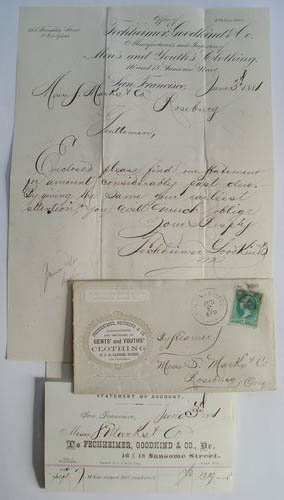 Office of
Fechheimer, Goodkind & Co.
Manufacturers and Importers
Men's and Youth's Clothing.
16 and 18 Sansome Street,
San Francisco, June 3d 1881
Mess J. Marks & Co
Roseburg
Gentlemen,
Enclosed please find our statement
for amount considerably past due.
By giving the same your earliest
attention you will much oblige
Yours Respfy
Fechheimer Goodkind & Co
FECHHEIMER, GOODKIND & CO.
GENTS' and YOUTHS'
CLOTHING
16 & 18 SANSOME STREET
Steamer
Mess S. Marks & Co
Roseburg
STATEMENT OF ACCOUNT.
San Francisco, June 3d 1881
Mess S Marks & Co
To FECHHEIMER, GOODKIND & CO., Dr.
16 & 18 Sansome Street.
Sept 7 To